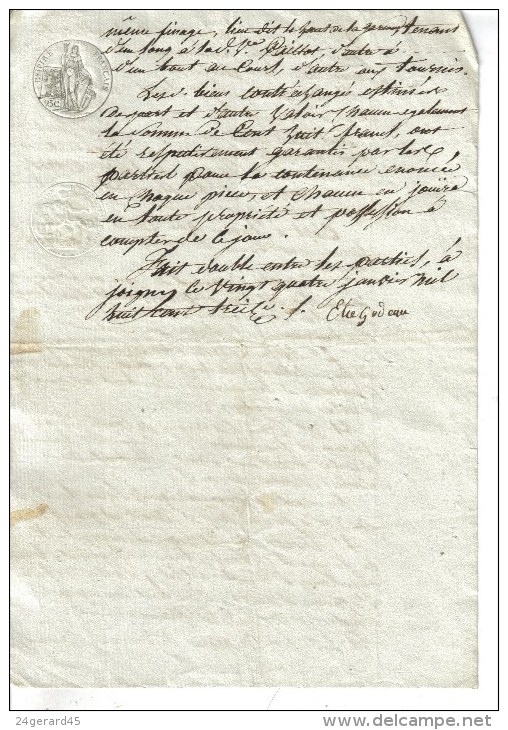 même finage, lieu dit le haut de la tenant
d'un long à la d. Ve Paillot, d'autre à
d'un bout au Court, d'autre aux tournis.
Les d. biens contréchangés estimés
de part et d'autre valoir chacun également
la somme de Cent huit francs, ont
été respectivement garantis par les
parties pour la contenance énoncée
en chaque piece, et chacun en jouira
en toute propriété et possession à
compter de ce jour.
Fait double entre les parties, à
joigny le vingt quatre janvier mil
huit cent treize. /.
Elie Godeau
EMPIRE FRANÇAIS
25C
24gerard45
www.delcampe.net